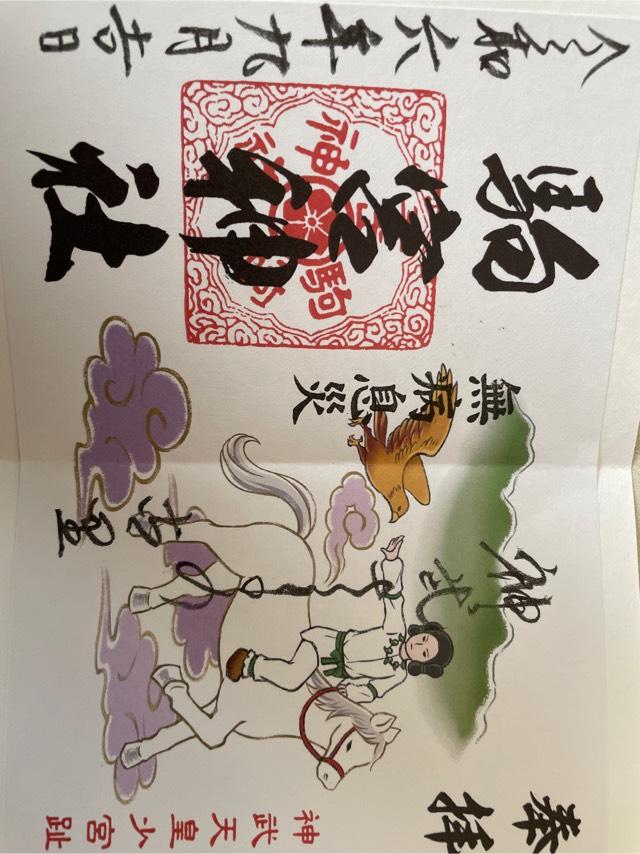 奉拝
神武天皇少宮趾
神武
の
古里
無病息災
駒宮神社
令和六年九月吉日